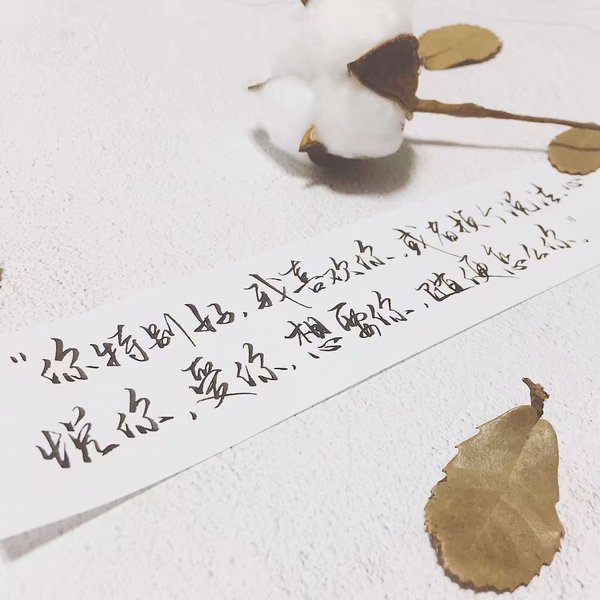 "你特别好，我喜欢你，或者换个说法，心
悦你，爱你，想要你，随便怎么你。"